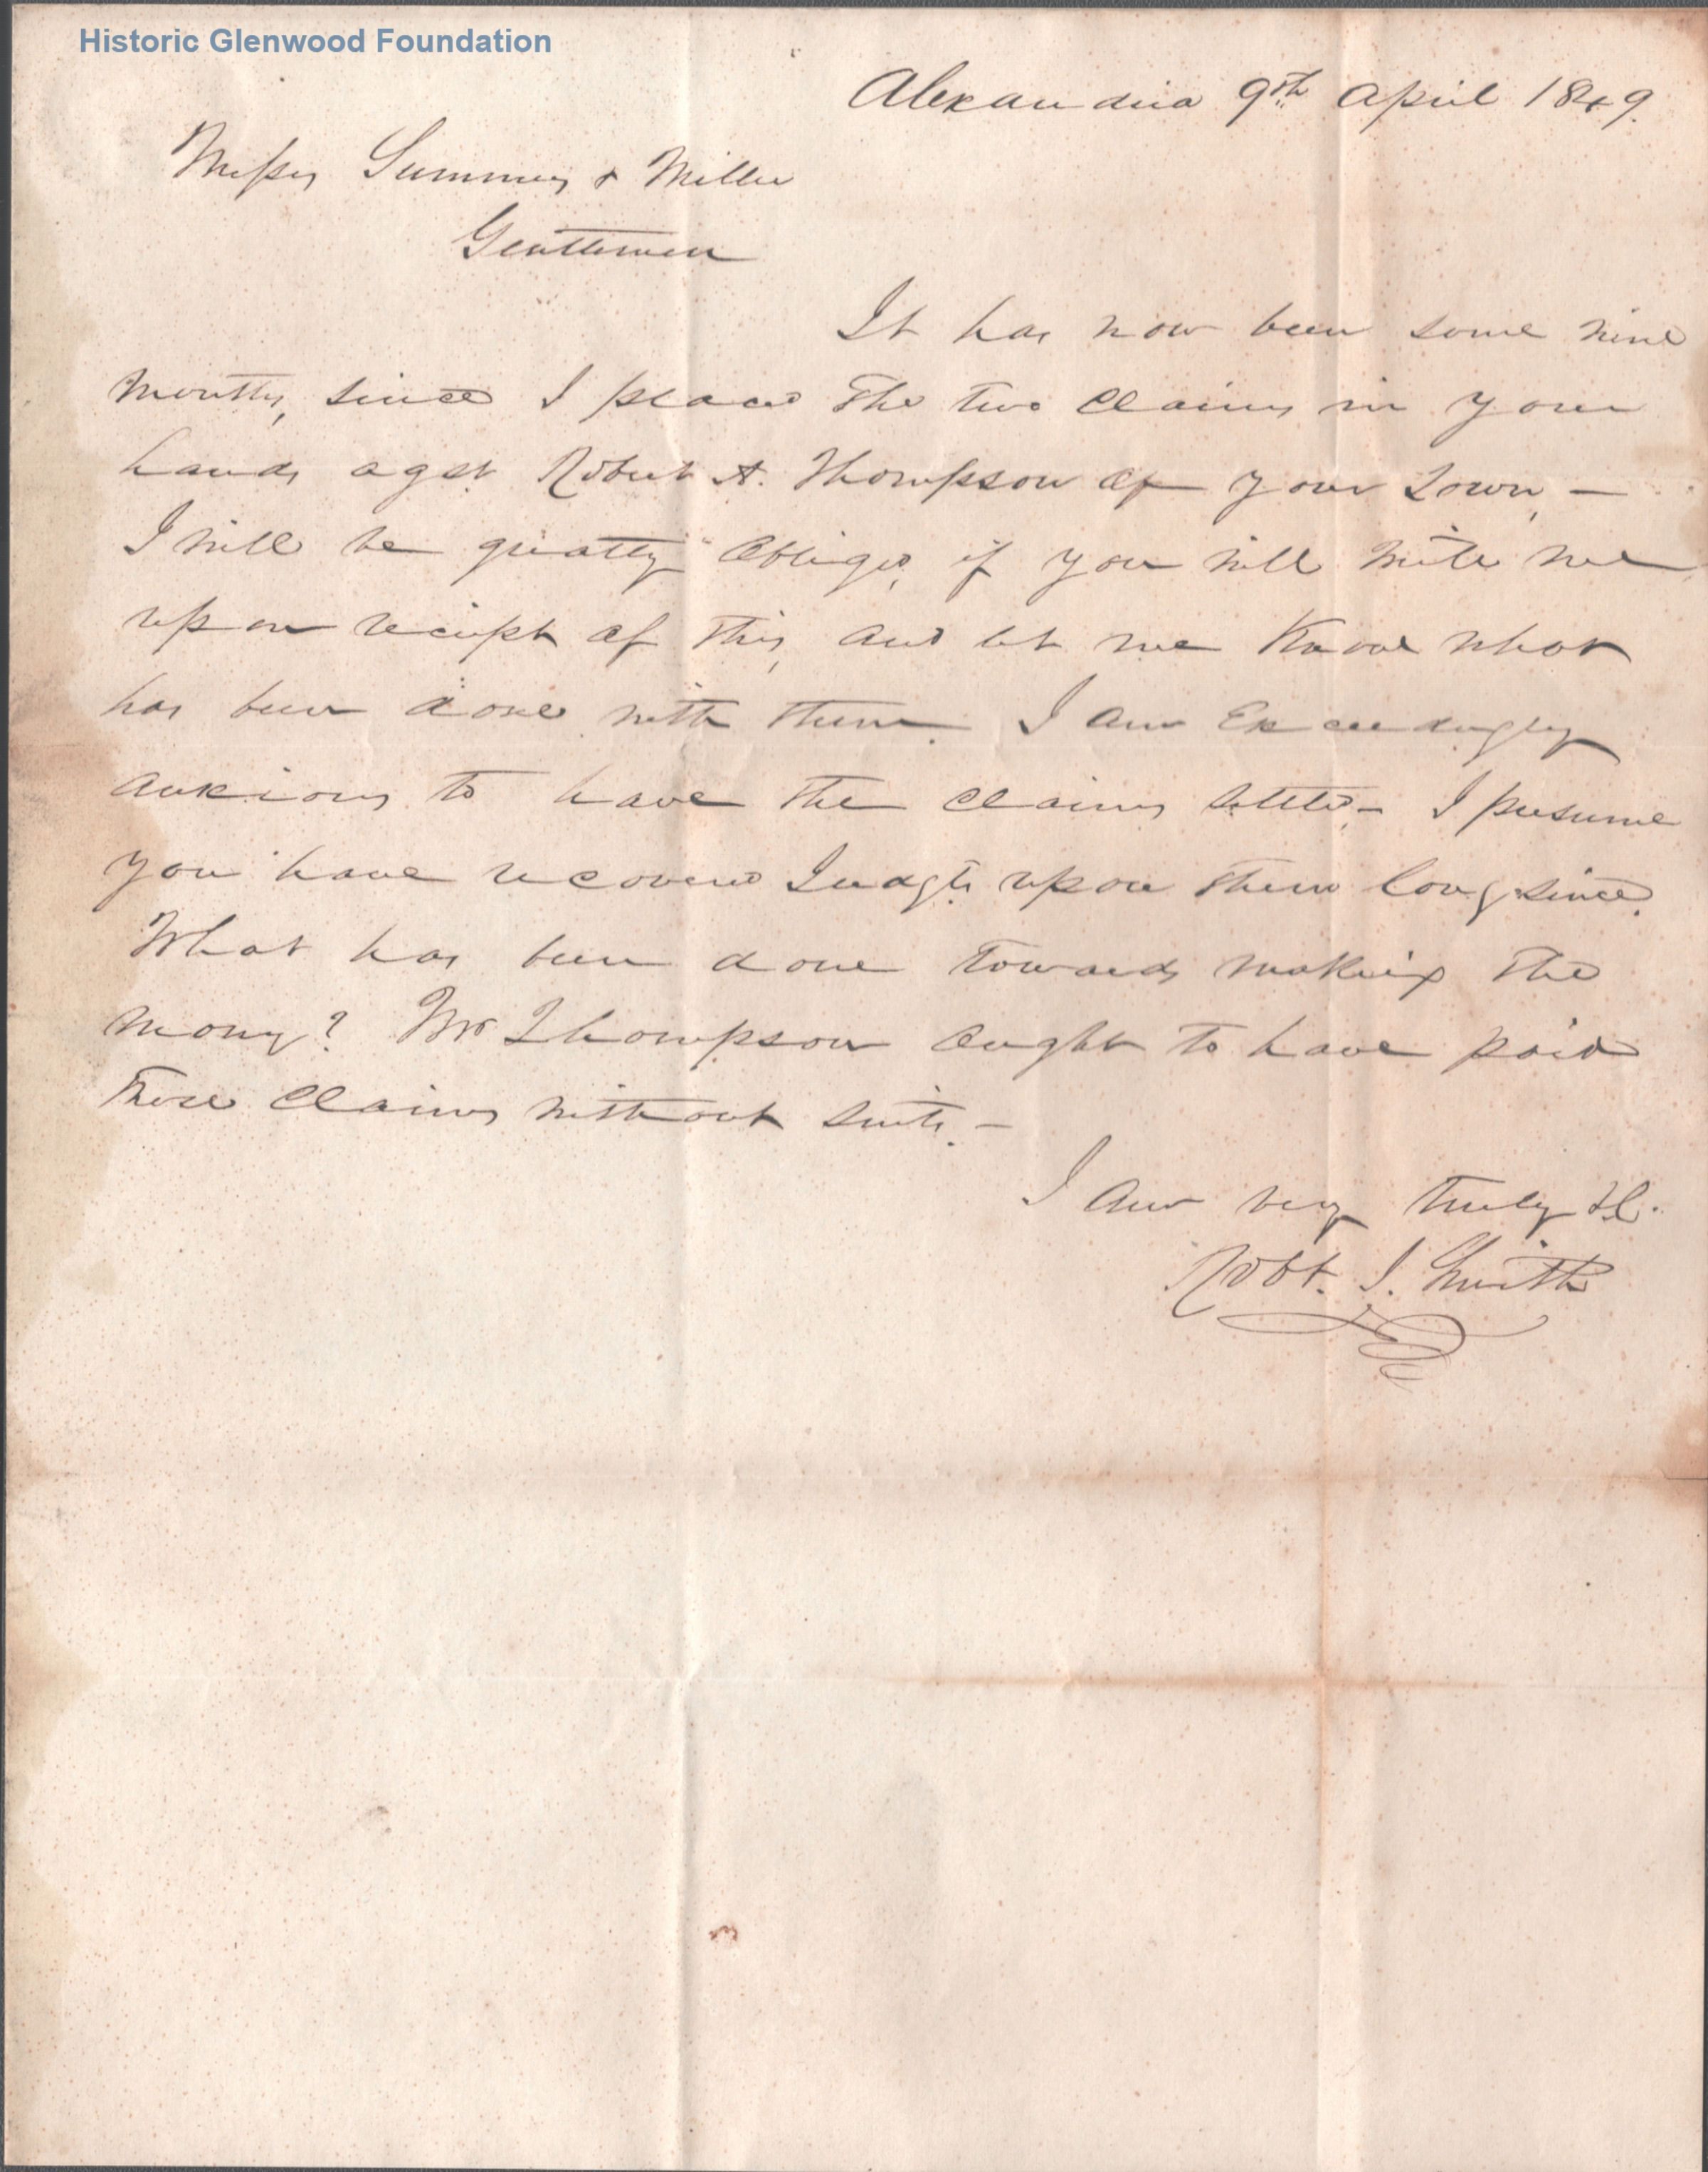 Historic Glenwood Foundation
Alexandria 9th April 1849.
Messrs Summers & Miller
Gentlemen
It has now been some nine
months, since I placed the two claims in your
hands agst Robert A. Thompson of your Town, —
I will be greatly obliged, if you will write me
upon receipt of this, and let me know what
has been done with them. I am Exceedingly
anxious to have the claims settled — I presume
you have recovered Judgts upon them long since.
What has been done towards making the
money? Mr Thompson ought to have paid
these claims without suits. —
I am very truly &c.
Robt. J. Smith